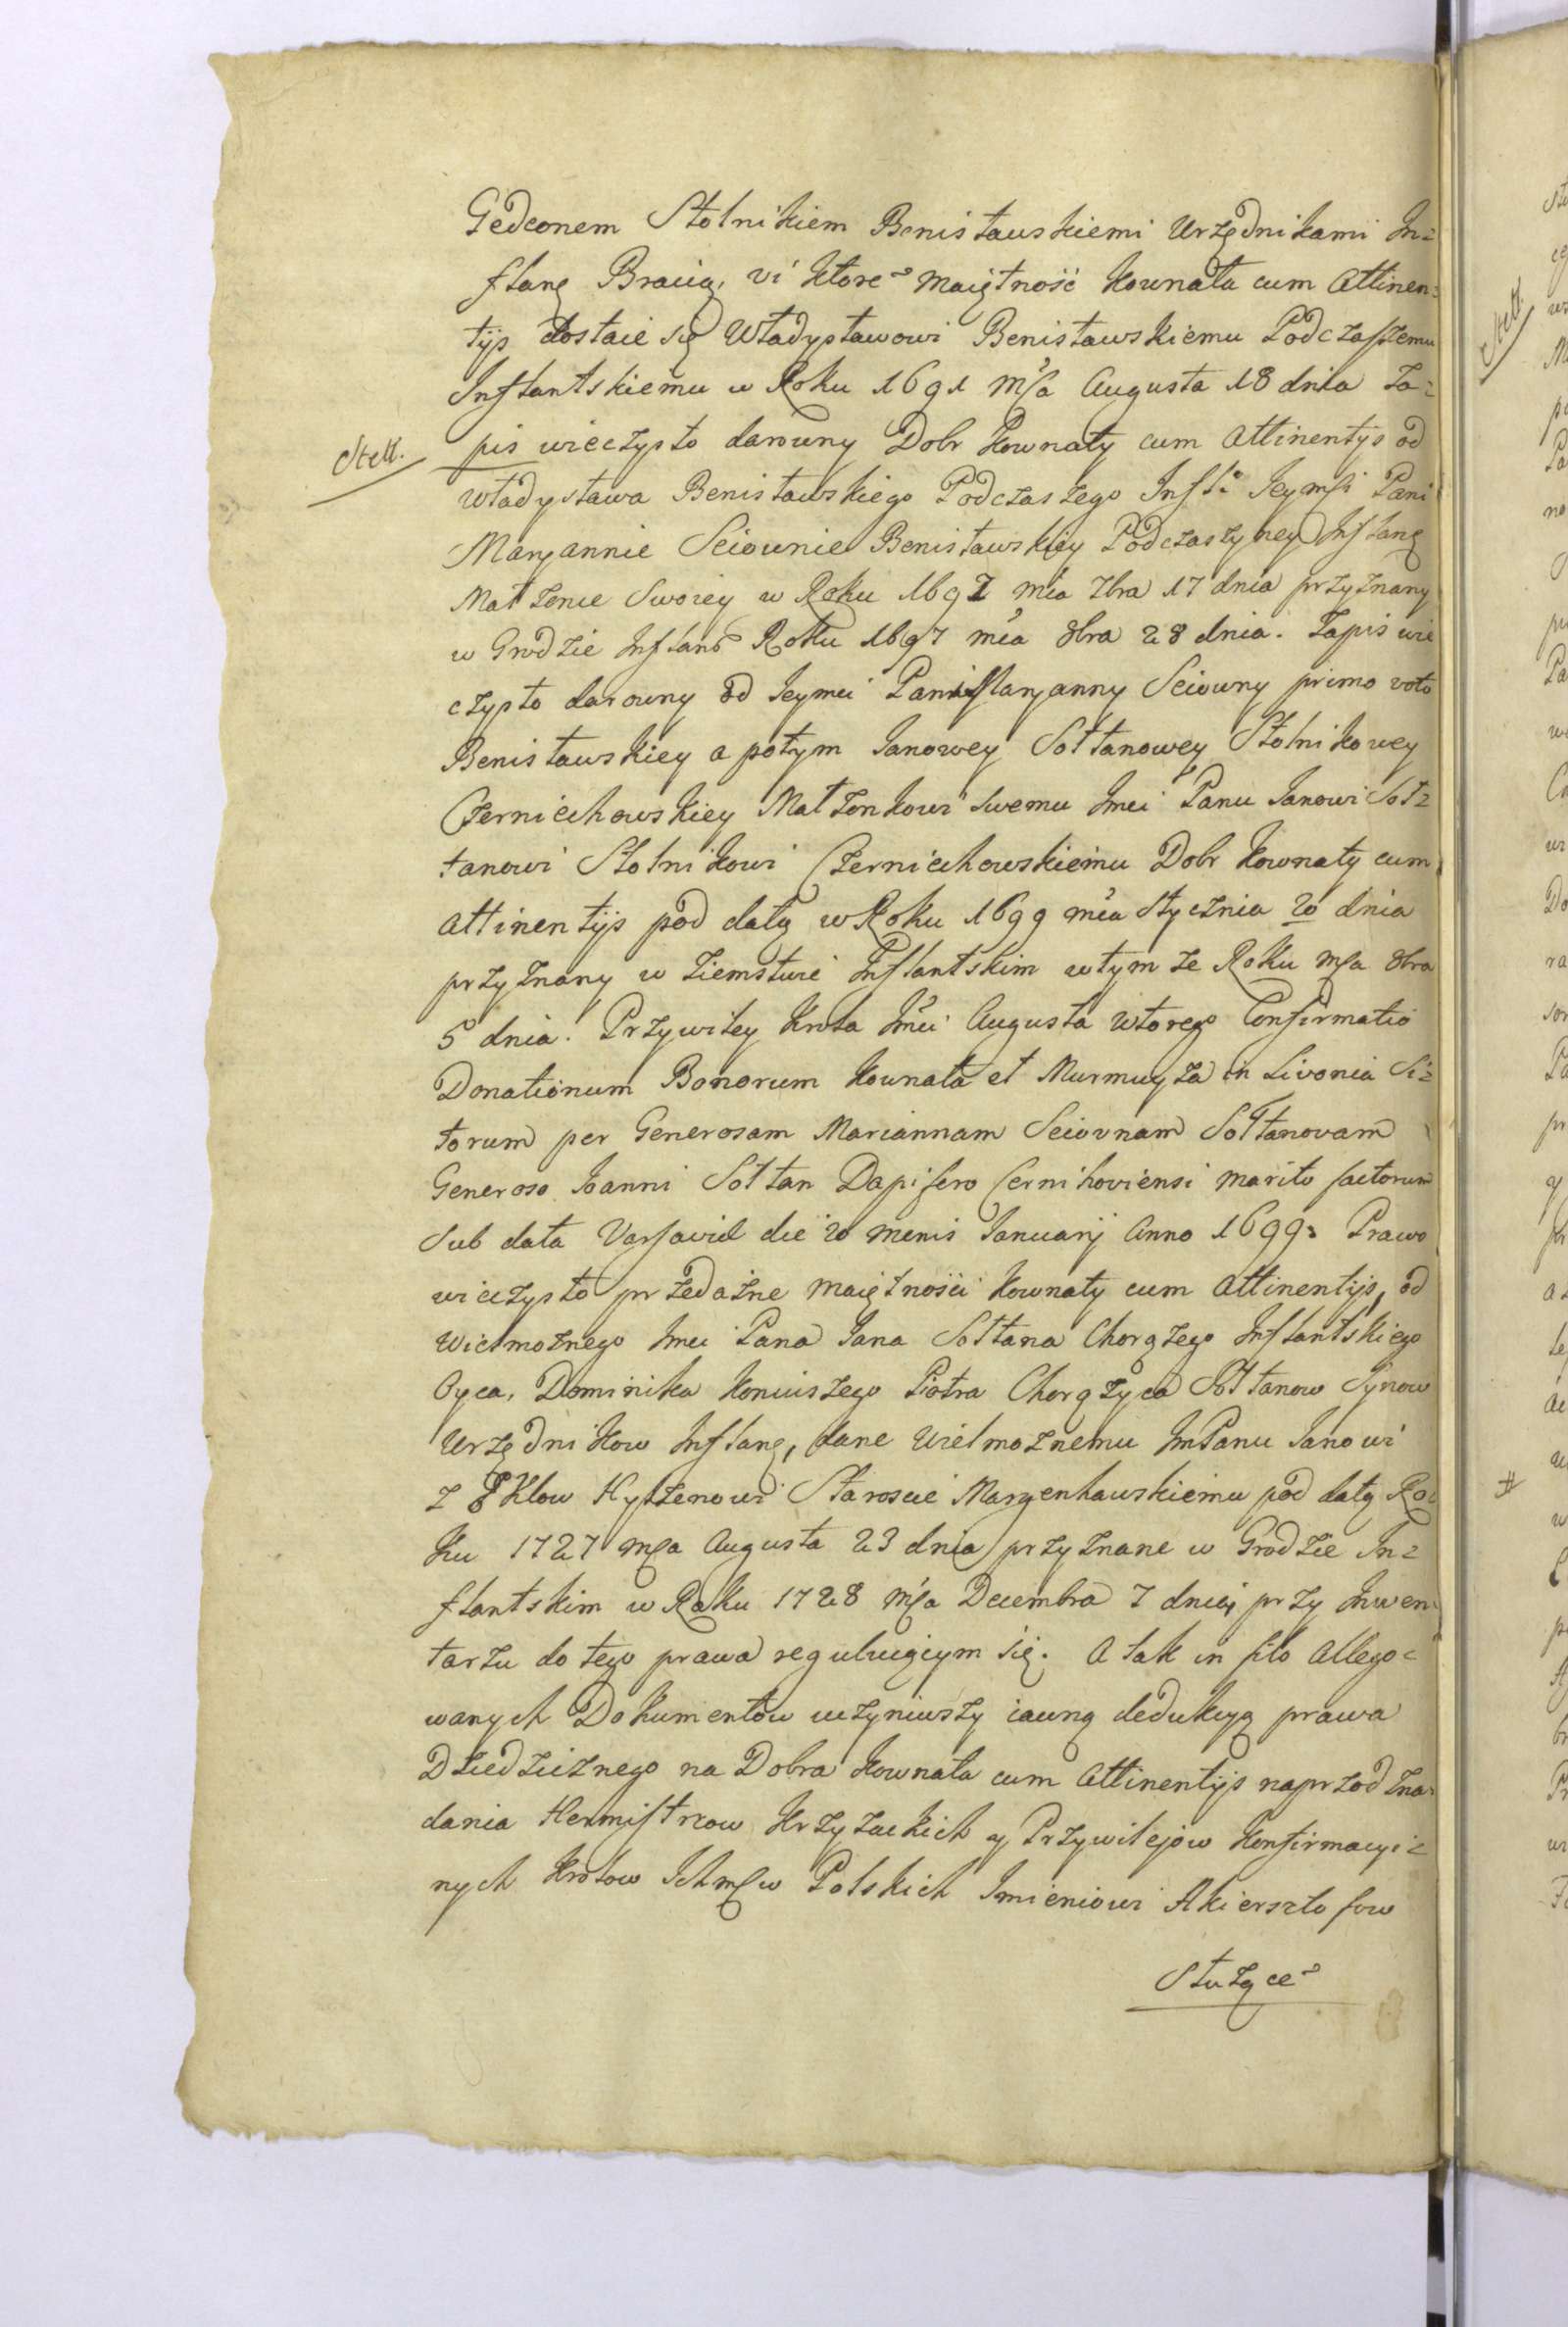 Gedeonem Stolnikiem Benisławskiemi Urzędnikami In=
flang Bracią, vi ktore maiętność Kownata cum Attinen=
tijs dostaie się Władysławowi Benisławskiemu Podczaszemu
Inflantskiemu w Roku 1691 Mca Augusta 18 dnia Za=
Stell.
pis wieczysto darowny Dobr Kownaty cum Attinentijs od
Władysława Benisławskiego Podczaszego Infl: Jeymsi Pani
Maryannie Seiownie Benisławskiey Podczaszyney Inflang
Małżonce Swoiey w Roku 1692 mca 7bra 17 dnia przyznany
w Grodzie Inflan Roku 1697 mca 8bra 28 dnia. Zapis wie
czysto darowny od Jeymci Pani Maryanny Seiowny primo voto
Benisławskiey a potym Janowey Sołtanowey Stolnikowey
Czerniechowskiey Małżonkowi Swemu Jmci Panu Janowi Soł=
tanowi Stolnikowi Czerniechowskiemu Dobr Kownaty cum
Attinentijs pod datą w Roku 1699 mca Stycznia 20 dnia
przyznany w Ziemstwie Inflantskim w tymże Roku mca 8bra
5 dnia. Przywiley Krola Jmci Augusta Wtorego Confirmatio
Donationum Bonorum Kownata et Murmuyża in Livonia Si=
torum per Generosam Mariannam Seiovnam Sołtanovam
Generoso Joanni Sołtan Dapifero Cernihoviensi marito factorum
Sub data Varsaviæ die 20 mensis Januarij Anno 1699. Prawo
wieczysto przedażne maiętności Kownaty cum Attinentijs, od
Wielmożnego Jmci Pana Jana Sołtana Chorążego Inflantskiego
Oyca, Dominika Koniuszego Piotra Chorążyca Sołtanow Synow
Urzędnikow Inflang, dane Wielmożnemu JmPanu Janowi
z Eklow Hylzenowi Staroscie Maryenhauskiemu pod datą Ro=
ku 1727 mca Augusta 23 dnia przyznane w Grodzie In=
flantskim w Roku 1728 mca Decembra 7 dnia, przy Inwen=
tarzu do tego prawa reguluiącym się. A tak in filo Allego=
wanych Dokumentow uczyniwszy iawną dedukcyą prawa
Dziedzicznego na Dobra Kownata cum Attinentijs naprzod zna=
dania Hermistrzow Krzyżackich y Przywilejow Konfirmacyi=
nych Krolow Ichmsw Polskich Imieniowi Akierszto fow
Służące